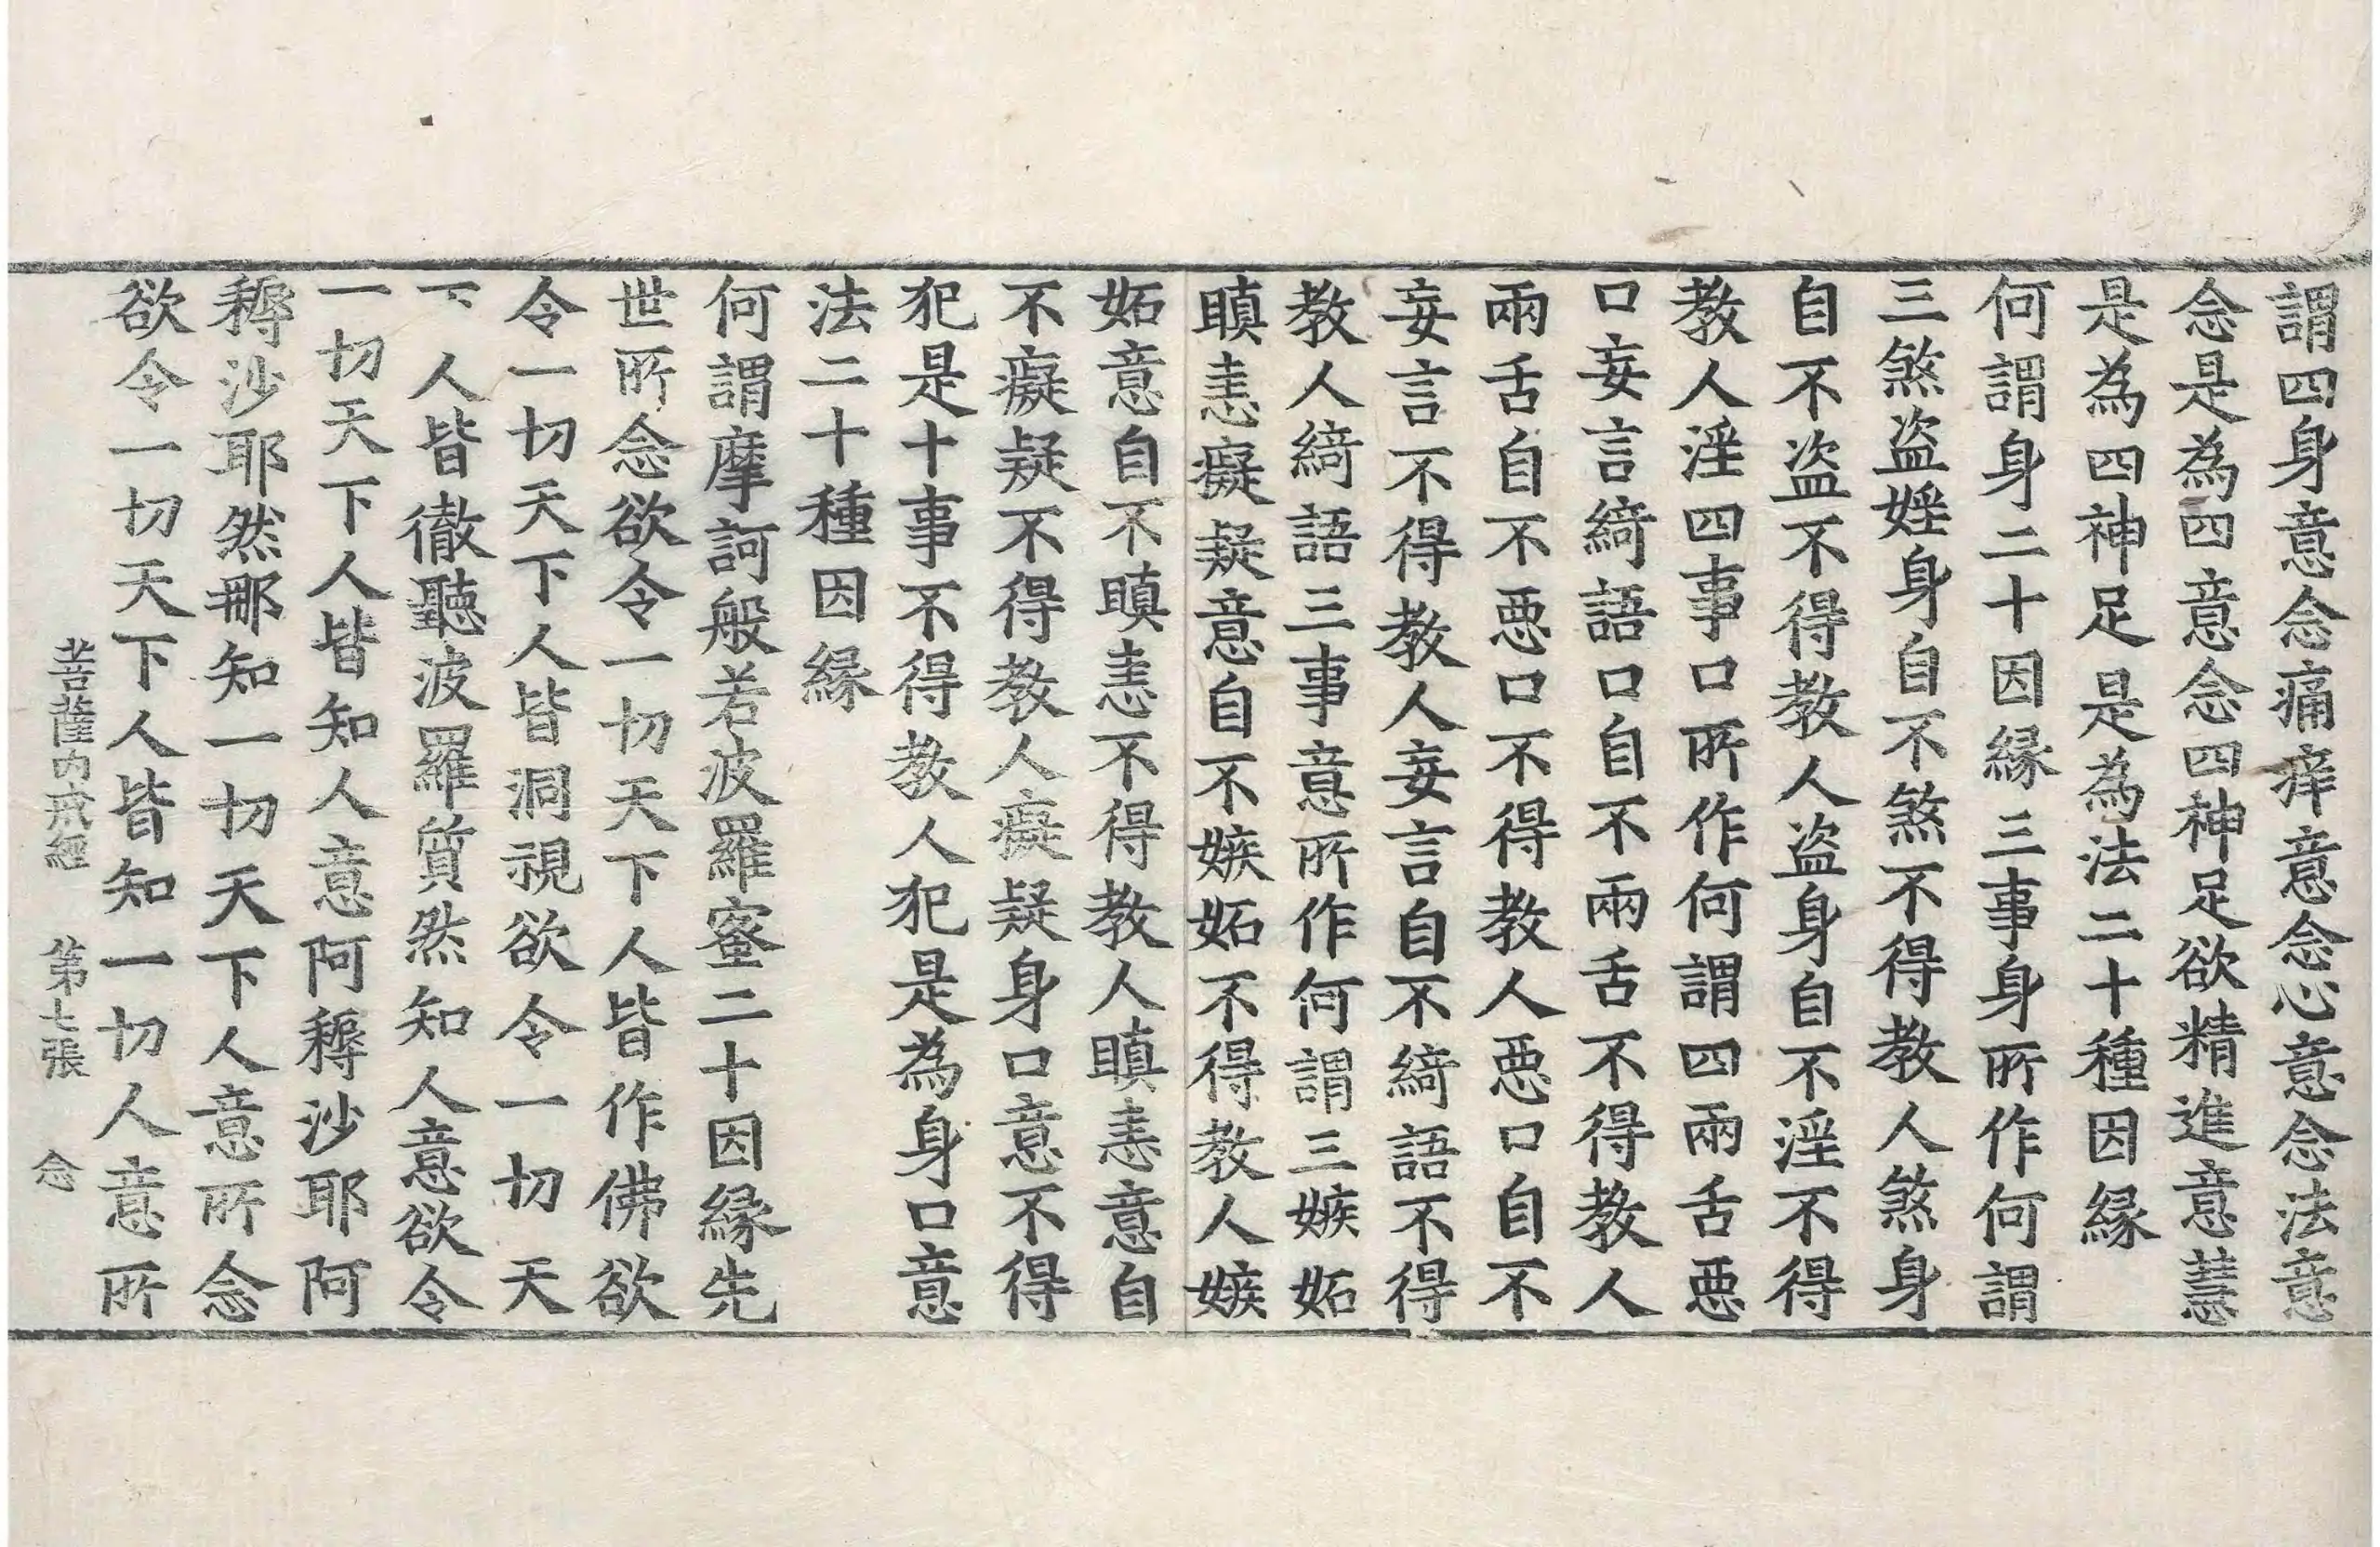 謂四身意念痛痒意念心意念法意
念是為四意念四神足欲精進意慧
是為四神足是為法二十種因緣
何謂身二十因緣三事身所作何謂
三煞盗婬身自不煞不得教人煞身
自不盗不得教人盗身自不淫不得
教人淫四事口所作何謂四兩舌惡
口妄言綺語口自不兩舌不得教人
兩舌自不惡口不得教人惡口自不
妄言不得教人妄言自不綺語不得
教人綺語三事意所作何謂三嫉妬
瞋恚癡疑意自不嫉妬不得教人嫉
妬意自不瞋恚不得教人瞋恚意自
不癡疑不得教人癡疑身口意不得
犯是十事不得教人犯是為身口意
法二十種因緣
何謂摩訶般若波羅蜜二十因緣先
世所念欲令一切天下人皆作佛欲
令一切天下人皆洞視欲令一切天
下人皆徹聽波羅質然知人意欲令
一切天下人皆知人意阿耨沙耶阿
耨沙耶然那知一切天下人意所念
欲令一切天下人皆知一切人意所
菩薩內戒經 第七張 念